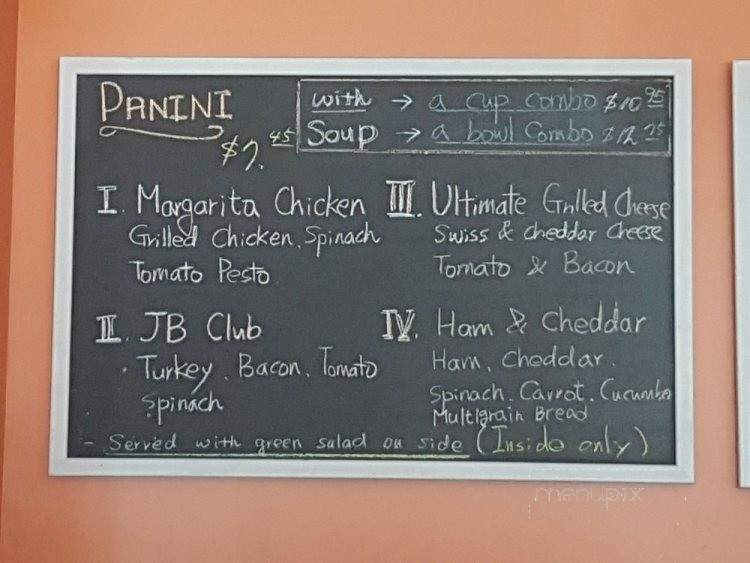 PANINI
$7.45
with → a cup combo $10.95
Soup → a bowl Combo $12.75
I. Margarita Chicken
Grilled Chicken, Spinach
Tomato Pesto
II. JB Club
Turkey, Bacon, Tomato
Spinach
III. Ultimate Grilled Cheese
Swiss & cheddar cheese
Tomato & Bacon
IV. Ham & Cheddar
Ham, cheddar,
Spinach, Carrot, Cucumber
Multigrain Bread
- Served with green salad on side (Inside only)
menupix